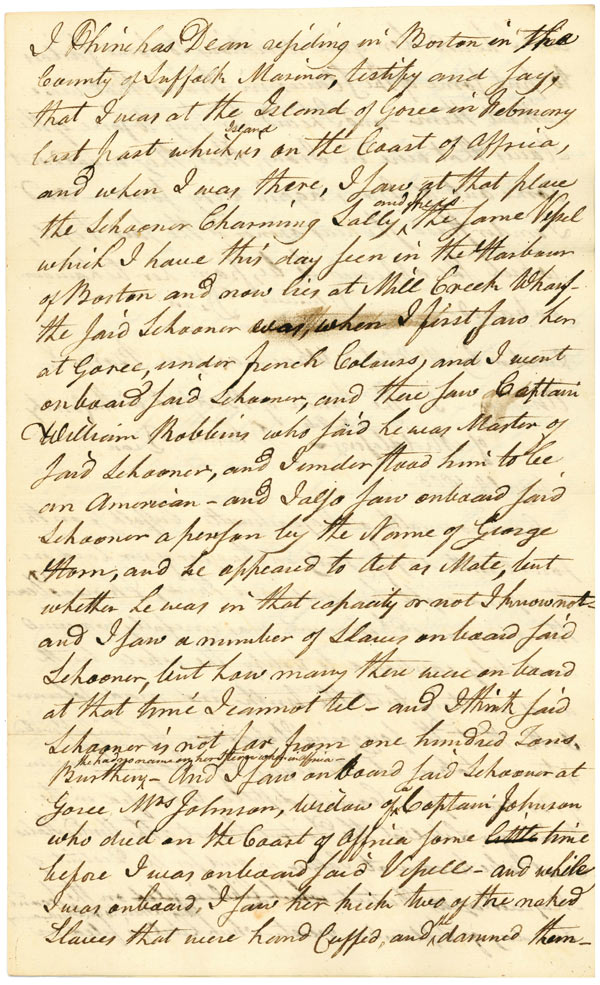 I Phinehas Dean residing in Boston in the
County of Suffolk Mariner, testify and say,
that I was at the Island of Goree in February
Island
last past which is on the Coast of Affrica,
and when I was there, I saw at that place
and she is
the Schooner Charming Sally, the same Vessel
which I have this day seen in the Harbour
of Boston and now lies at Mill Creek Wharf-
the said Schooner was, when I first saw her
at Goree, under french Colours, and I went
onboard said Schooner, and there saw Captain
William Robbins who said he was Master of
said Schooner, and I understood him to be
an American - and I also saw onboard said
Schooner a person by the Name of George
Horn, and he appeared to Act as Mate, but
whether he was in that capacity or not I know not-
and I saw a number of Slaves onboard said
Schooner, but how many there were on board
at that time I cannot tel - and I think said
Schooner is not far from one hundred Tons
she had no name on her Stern when in Affrica -
Burthen, - And I saw onboard said Schooner at
Goree Mrs Johnson, widow of a Captain Johnson
who died on the Coast of Affrica some little time
before I was onboard said Vessell - and while
I was onboard, I saw her kick two of the naked
Slaves that were hand Cuffed, and she damned them -